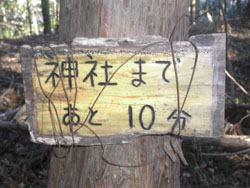 神社まで
あと 10分